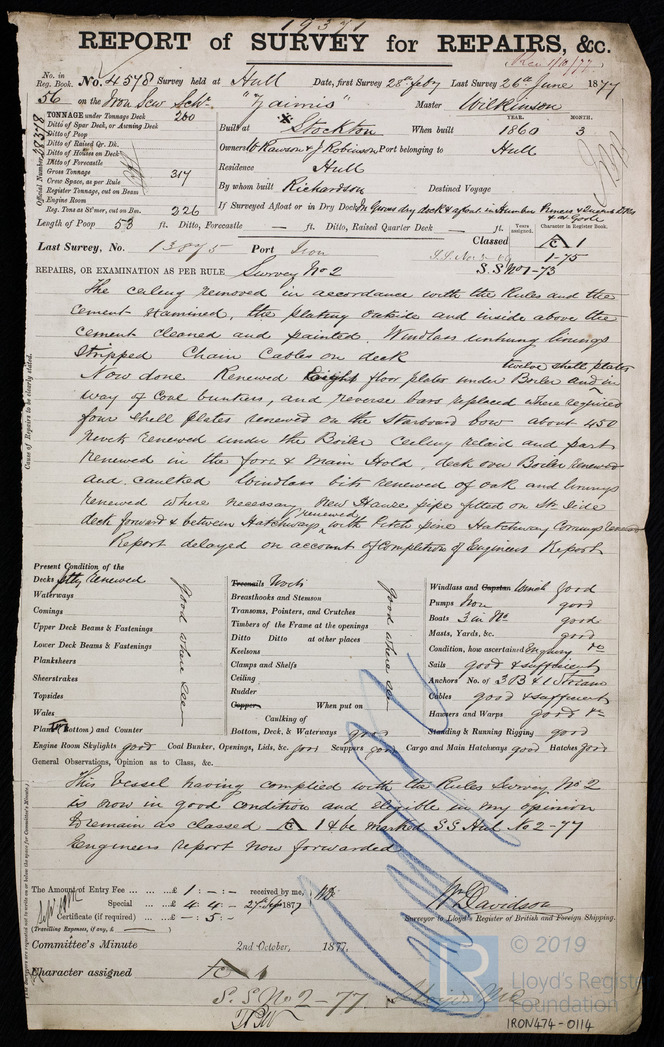 19371
REPORT of SURVEY for REPAIRS, &c.
Rec 1/10/77
No. in Reg. Book. No. 4578 Survey held at Hull Date, first Survey 28th feby Last Survey 26th June 1877
56 on the Iron Scw Schr "Zaimis" Master Wilkinson
TONNAGE under Tonnage Deck 260
Ditto of Spar Deck, or Awning Deck
Ditto of Poop
Ditto of Raised Qr. Dk.
Ditto of Houses on Deck
Ditto of Forecastle
Gross Tonnage 317
Crew Space, as per Rule
Register Tonnage, cut on Beam
Engine Room
Reg. Tons as St'mer, cut on Bm. 226
Official Number 28378
Built at Stockton When built YEAR. 1860 MONTH. 3
Owners W Rawson & J Robinson Port belonging to Hull
Residence Hull
By whom built Richardson Destined Voyage
If Surveyed Afloat or in Dry Dock In Graves dry dock & afloat in Humber Princes & Queens Docks
Length of Poop 53 ft. Ditto, Forecastle — ft. Ditto, Raised Quarter Deck — ft. Years assigned. Character in Register Book.
Last Survey, No. 13875 Port Iron Classed A 1
1-75
S.S. No 1-73
REPAIRS, OR EXAMINATION AS PER RULE Survey No 2
The ceiling removed in accordance with the Rules and the
cement examined, the plating outside and inside above the
cement cleaned and painted. Windlass unhung linings
stripped Chain Cables on deck
twelve shell plates
Now done Renewed Eight floor plates under Boiler and in
way of Coal bunkers, and reverse bars replaced where required
four shell plates renewed on the Starboard bow about 450
rivets renewed under the Boiler Ceiling relaid and part
renewed in the fore & Main Hold, deck over Boiler renewed
and caulked Windlass bits renewed of oak and linings
renewed where necessary New Hawse pipe fitted on St. Side
deck forward & between Hatchways renewed with Pitch pine Hatchway Comings renewed
Report delayed on account of completion of Engineers Report
Cause of Repairs to be clearly stated.
Present Condition of the
Decks ptly renewed
Waterways
Comings
Upper Deck Beams & Fastenings
Lower Deck Beams & Fastenings
Planksheers
Sheerstrakes
Topsides
Wales
Plank (Bottom) and Counter
good where seen
Treenails Rivets
Breasthooks and Stemson
Transoms, Pointers, and Crutches
Timbers of the Frame at the openings
Ditto Ditto at other places
Keelsons
Clamps and Shelfs
Ceiling
Rudder
Copper When put on
Caulking of
Bottom, Deck, & Waterways good
good where seen
Windlass and Capstan Winch good
Pumps Iron good
Boats 3 in No good
Masts, Yards, &c. good
Condition, how ascertained Enquiry &c
Sails good & sufficient
Anchors No. of 3 B & 1 Stream
Cables good & sufficient
Hawsers and Warps good &c
Standing & Running Rigging good
Engine Room Skylights good Coal Bunker, Openings, Lids, &c. good Scuppers good Cargo and Main Hatchways good Hatches good
General Observations, Opinion as to Class, &c.
This Vessel having complied with the Rules Survey No 2
is now in good condition and eligible in my opinion
to remain as classed A 1 & be marked SS Hul No 2-77
Engineers report now forwarded
The Amount of Entry Fee ... ... ...£ 1 : - : - received by me,
Special ... ...£ 4 : 4 : - 27th Sep 1877
Certificate (if required) ... ...£ - : 5 : -
(Travelling Expenses, if any, £ )
Wm Davidson
Surveyor to Lloyd's Register of British and Foreign Shipping.
Committee's Minute 2nd October, 1877.
Character assigned A 1
S.S No 2-77
© 2019
Lloyd's Register
Foundation
IRON474-0114